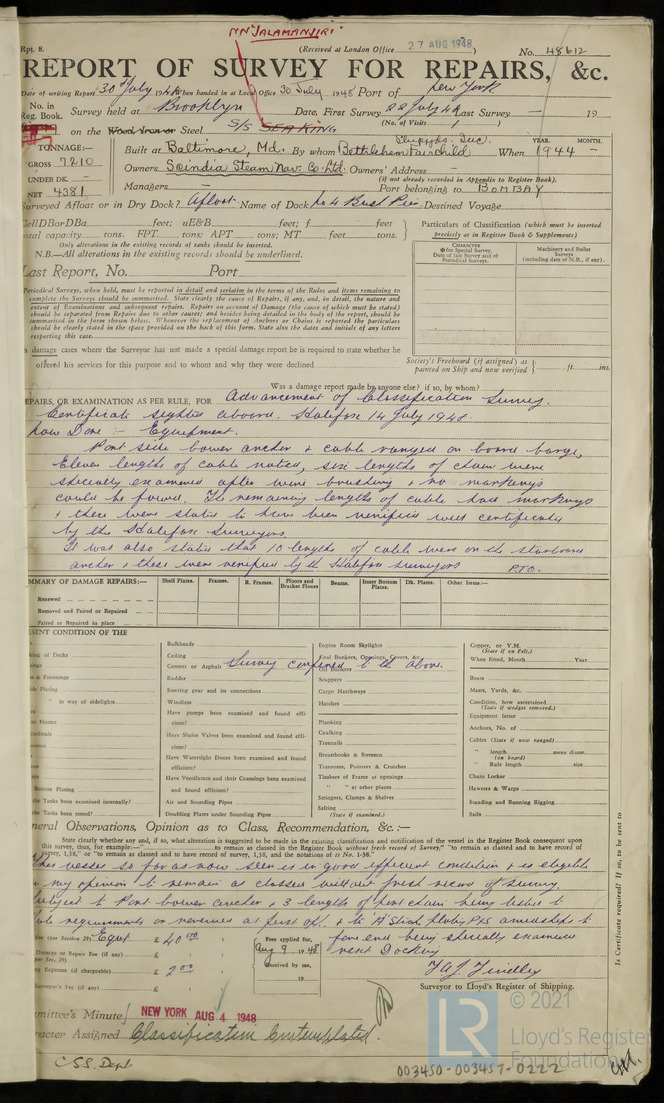 NN "JALAMANJIRI"
Rpt. 8.
(Received at London Office 27 AUG 1948)
No. 48612
REPORT OF SURVEY FOR REPAIRS, &c.
Date of writing Report 30 July 1948 When handed in at Local Office 30 July 1948 Port of New York
No. in Reg. Book. Survey held at Brooklyn Date, First Survey 22 July 48 Last Survey — 19
(No. of Visits 1)
on the Wood Iron or Steel S/S SEA KING
TONNAGE:—
GROSS 7210
UNDER DK. —
NET 4381
Built at Baltimore, Md. By whom Bethlehem Fairchild Shipyds. Inc. When YEAR. 1944 MONTH. —
Owners Scindia Steam Nav. Co. Ltd. Owners' Address —
(if not already recorded in Appendix to Register Book).
Managers — Port belonging to BOMBAY
Surveyed Afloat or in Dry Dock? Afloat Name of Dock Destined Voyage
CellDBorDBa feet; uE&B feet; f feet
total capacity tons. FPT tons; APT tons; MT feet tons.
Only alterations in the existing records of tanks should be inserted.
N.B.—All alterations in the existing records should be underlined.
Last Report, No. Port
Particulars of Classification (which must be inserted precisely as in Register Book & Supplements)
CHARACTER
for Special Survey.
Date of last Survey and of Periodical Surveys.
Machinery and Boiler Surveys
(including date of N.B., if any).
Periodical Surveys, when held, must be reported in detail and seriatim in the terms of the Rules and items remaining to
complete the Surveys should be summarised. State clearly the cause of Repairs, if any, and, in detail, the nature and
extent of Examinations and subsequent repairs. Repairs on account of Damage (the cause of which must be stated)
should be separated from Repairs due to other causes; and besides being detailed in the body of the report, should be
summarised in the form shown below. Whenever the replacement of Anchors or Chains is reported the particulars
should be clearly stated in the space provided on the back of this form. State also the dates and initials of any letters
respecting this case.
In damage cases where the Surveyor has not made a special damage report he is required to state whether he
offered his services for this purpose and to whom and why they were declined
Society's Freeboard (if assigned) as painted on Ship and now verified ft. ins.
Was a damage report made by anyone else? if so, by whom?
REPAIRS, OR EXAMINATION AS PER RULE, FOR Advancement of Classification Survey.
Certificate sighted aboard. Halifax 14 July 1948.
Now Done :- Equipment.
Port side bower anchor & cable ranged on board barge,
Eleven lengths of cable noted, six lengths of chain were
specially examined after wire brushing & no markings
could be found. The remaining lengths of cable had markings
& these were stated to have been verified with certificates
by the Halifax Surveyors.
It was also stated that 10 lengths of cable were on the starboard
anchor & these were verified by the Halifax surveyors P.T.O.
SUMMARY OF DAMAGE REPAIRS:—
Shell Plates. Frames. R. Frames. Floors and Bracket Floors Beams. Inner Bottom Plates. Dk. Plates. Other items :—
Renewed
Removed and Faired or Repaired
Faired or Repaired in place
PRESENT CONDITION OF THE
Survey confined to the above.
Bulkheads
Ceiling
Cement or Asphalt
Rudder
Steering gear and its connections
Windlass
Have pumps been examined and found efficient?
Have Sluice Valves been examined and found efficient?
Have Watertight Doors been examined and found efficient?
Have Ventilators and their Coamings been examined and found efficient?
Air and Sounding Pipes
Doubling Plates under Sounding Pipes
Engine Room Skylights
Coal Bunkers, Openings, Covers, &c.
Oil Bunkers
Scuppers
Cargo Hatchways
Hatches
Planking
Caulking
Treenails
Breasthooks & Stemson
Transoms, Pointers & Crutches
Timbers of Frame at openings
" " at other places
Stringers, Clamps & Shelves
Salting
(State if examined.)
Copper, or Y.M.
(State if on Felt.)
When fitted, Month Year
Boats
Masts, Yards, &c.
Condition, how ascertained
(State if wedges removed.)
Equipment letter
Anchors, No. of
Cables (State if now ranged)
" length mean diame.
(on board)
" Rule length size
Chain Locker
Hawsers & Warps
Standing and Running Rigging
Sails
General Observations, Opinion as to Class, Recommendation, &c. :—
State clearly whether any and, if so, what alteration is suggested to be made in the existing classification and notification of the vessel in the Register Book consequent upon
this survey, thus, for example:—" to remain as classed in the Register Book without fresh record of Survey," "to remain as classed and to have record of
survey, 1,38," or "to remain as classed and to have record of survey, 1,38, and the notations of
This vessel so far as now seen is in good efficient condition & is eligible
in my opinion to remain as classed without fresh record of survey
subject to Port bower anchor & 3 lengths of port chain being tested to
rule requirements or renewed at first op.
fore end being specially examined
next Docking
Fee (per Section 29) Eqpt £ 40.00
Damage or Repair Fee (if any) £
(per Sec. 29)
Expenses (if chargeable) £ 2.00
Surveyor's Fee (if any) £
Fees applied for, Aug 9 1948
Received by me, 19
F.A.J. Findley
Surveyor to Lloyd's Register of Shipping.
Committee's Minute NEW YORK AUG 4 1948
Character Assigned Classification Contemplated.
C.S.S. Dept.
Is Certificate required? If so, to be sent to
© 2021
LR
Lloyd's Register
Foundation
003450-003457-0222